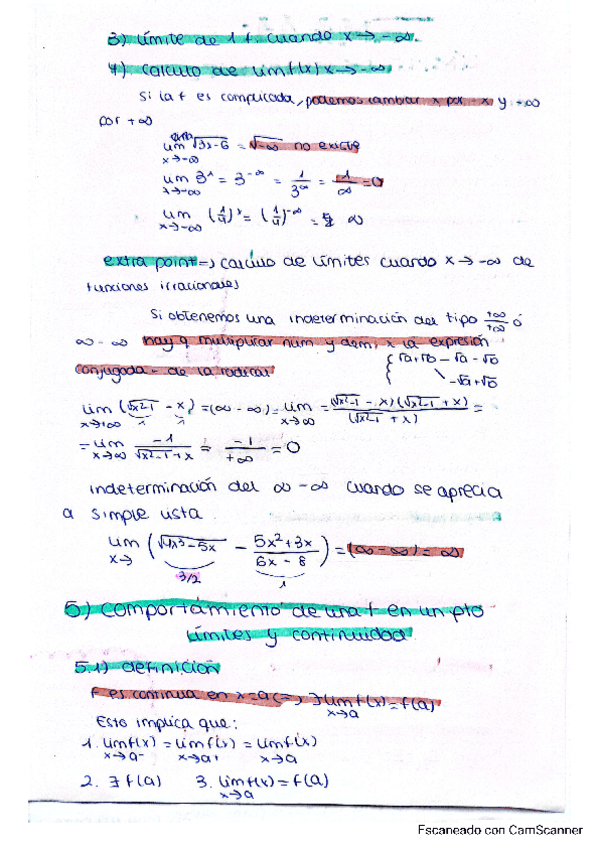 3) Límite de 1 f. cuando x → -∞.
4) calculo de lim f(x) x → -∞
Si la f es complicada, podemos cambiar x por -x y -∞
por +∞
lim √3x-6 = √-∞ no existe
x→-∞
lim 3ˣ = 3^-∞ = 1/3^∞ = 1/∞ = 0
x→-∞
lim (1/4)ˣ = (1/4)^-∞ = ∞
x→-∞
extra point => calculo de límites cuando x → -∞ de
funciones irracionales
Si obtenemos una indeterminación del tipo +∞/+∞ ó
∞ - ∞ hay q multiplicar num. y dem. x la expresión
conjugada - de la radical
{ √a+√b - √a-√b
-√a+√b
lim (√x²-1 - x) = (∞ - ∞) = lim = (√x²-1 - x)(√x²-1 + x)/(√x²-1 + x) =
x→+∞ 1 1 x→∞
= lim -1/√x²-1+x = -1/+∞ = 0
x→∞
indeterminación del ∞-∞ cuando se aprecia
a simple vista
lim (√4x³-5x - 5x²+3x/6x-8) = (∞-∞) = ∞
x→ 3/2 1
5) comportamiento de una f en un pto
límites y continuidad
5.1) definición
f es continua en x=a <=> ∃ lim f(x) = f(a)
x→a
Esto implica que:
1. lim f(x) = lim f(x) = lim f(x)
x→a- x→a+ x→a
2. ∃ f(a) 3. lim f(x) = f(a)
x→a
Escaneado con CamScanner